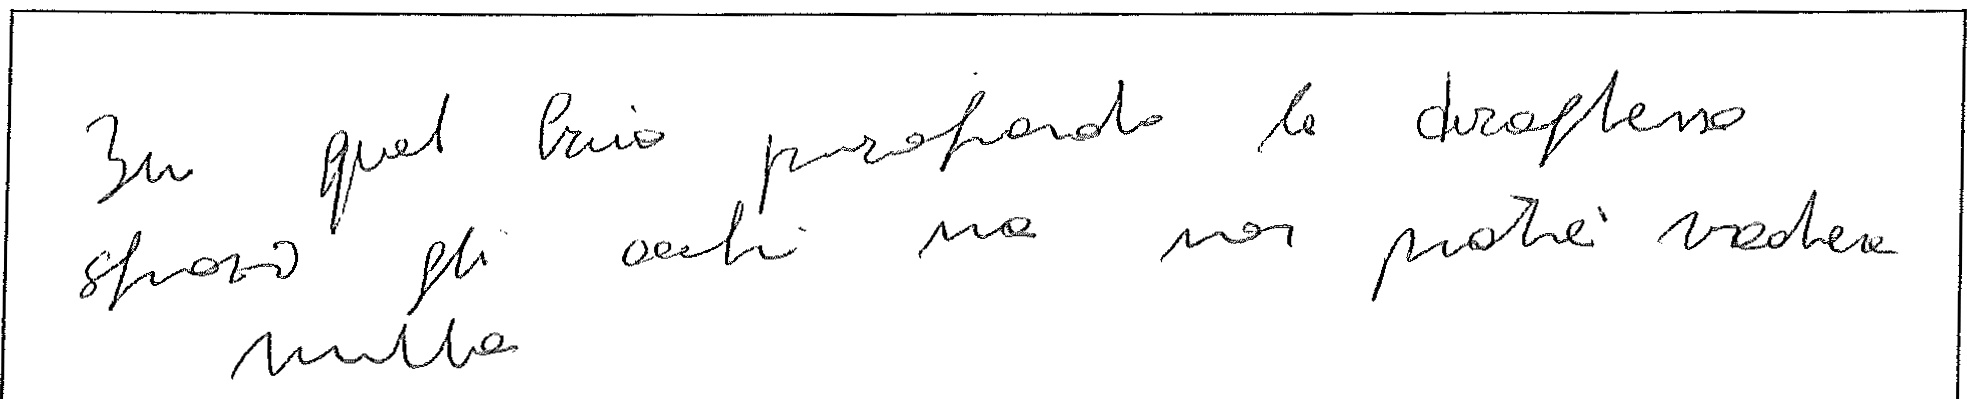 In quel buio profondo la draghessa
sfrozò gli occhi ma non poté vedere
nulla